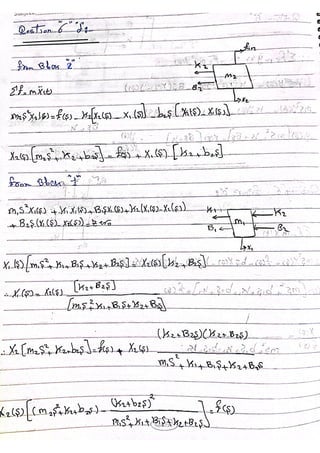 Question "6" d:
from Block "2"
K2
B2
m2
fin
x2
Σf = mẍ(t)
m2S²X2(S) = f(S) - K2[X2(S) - X1(S)] - b2S[X2(S) - X1(S)]
X2(S)[m2S² + K2 + b2S] = f(S) + X1(S)[K2 + b2S]
from Block "1"
m1S²X1(S) + K1X1(S) + B1SX1(S) + K2(X1(S) - X2(S))
+ B2S(X1(S) - X2(S)) = zero
K1
B1
m1
K2
B2
x1
X1(S)[m1S² + K1 + B1S + K2 + B2S] = X2(S)[K2 + B2S]
∴ X1(S) = X2(S) [K2 + B2S]
[m1S² + K1 + B1S + K2 + B2S]
∴ X2[m2S² + K2 + b2S] = f(S) + X2(S) (K2 + B2S)(K2 + B2S)
m1S² + K1 + B1S + K2 + B2S
X2(S)[(m2S² + K2 + b2S) - (K2 + b2S)²] = f(S)
m1S² + K1 + B1S + K2 + B2S